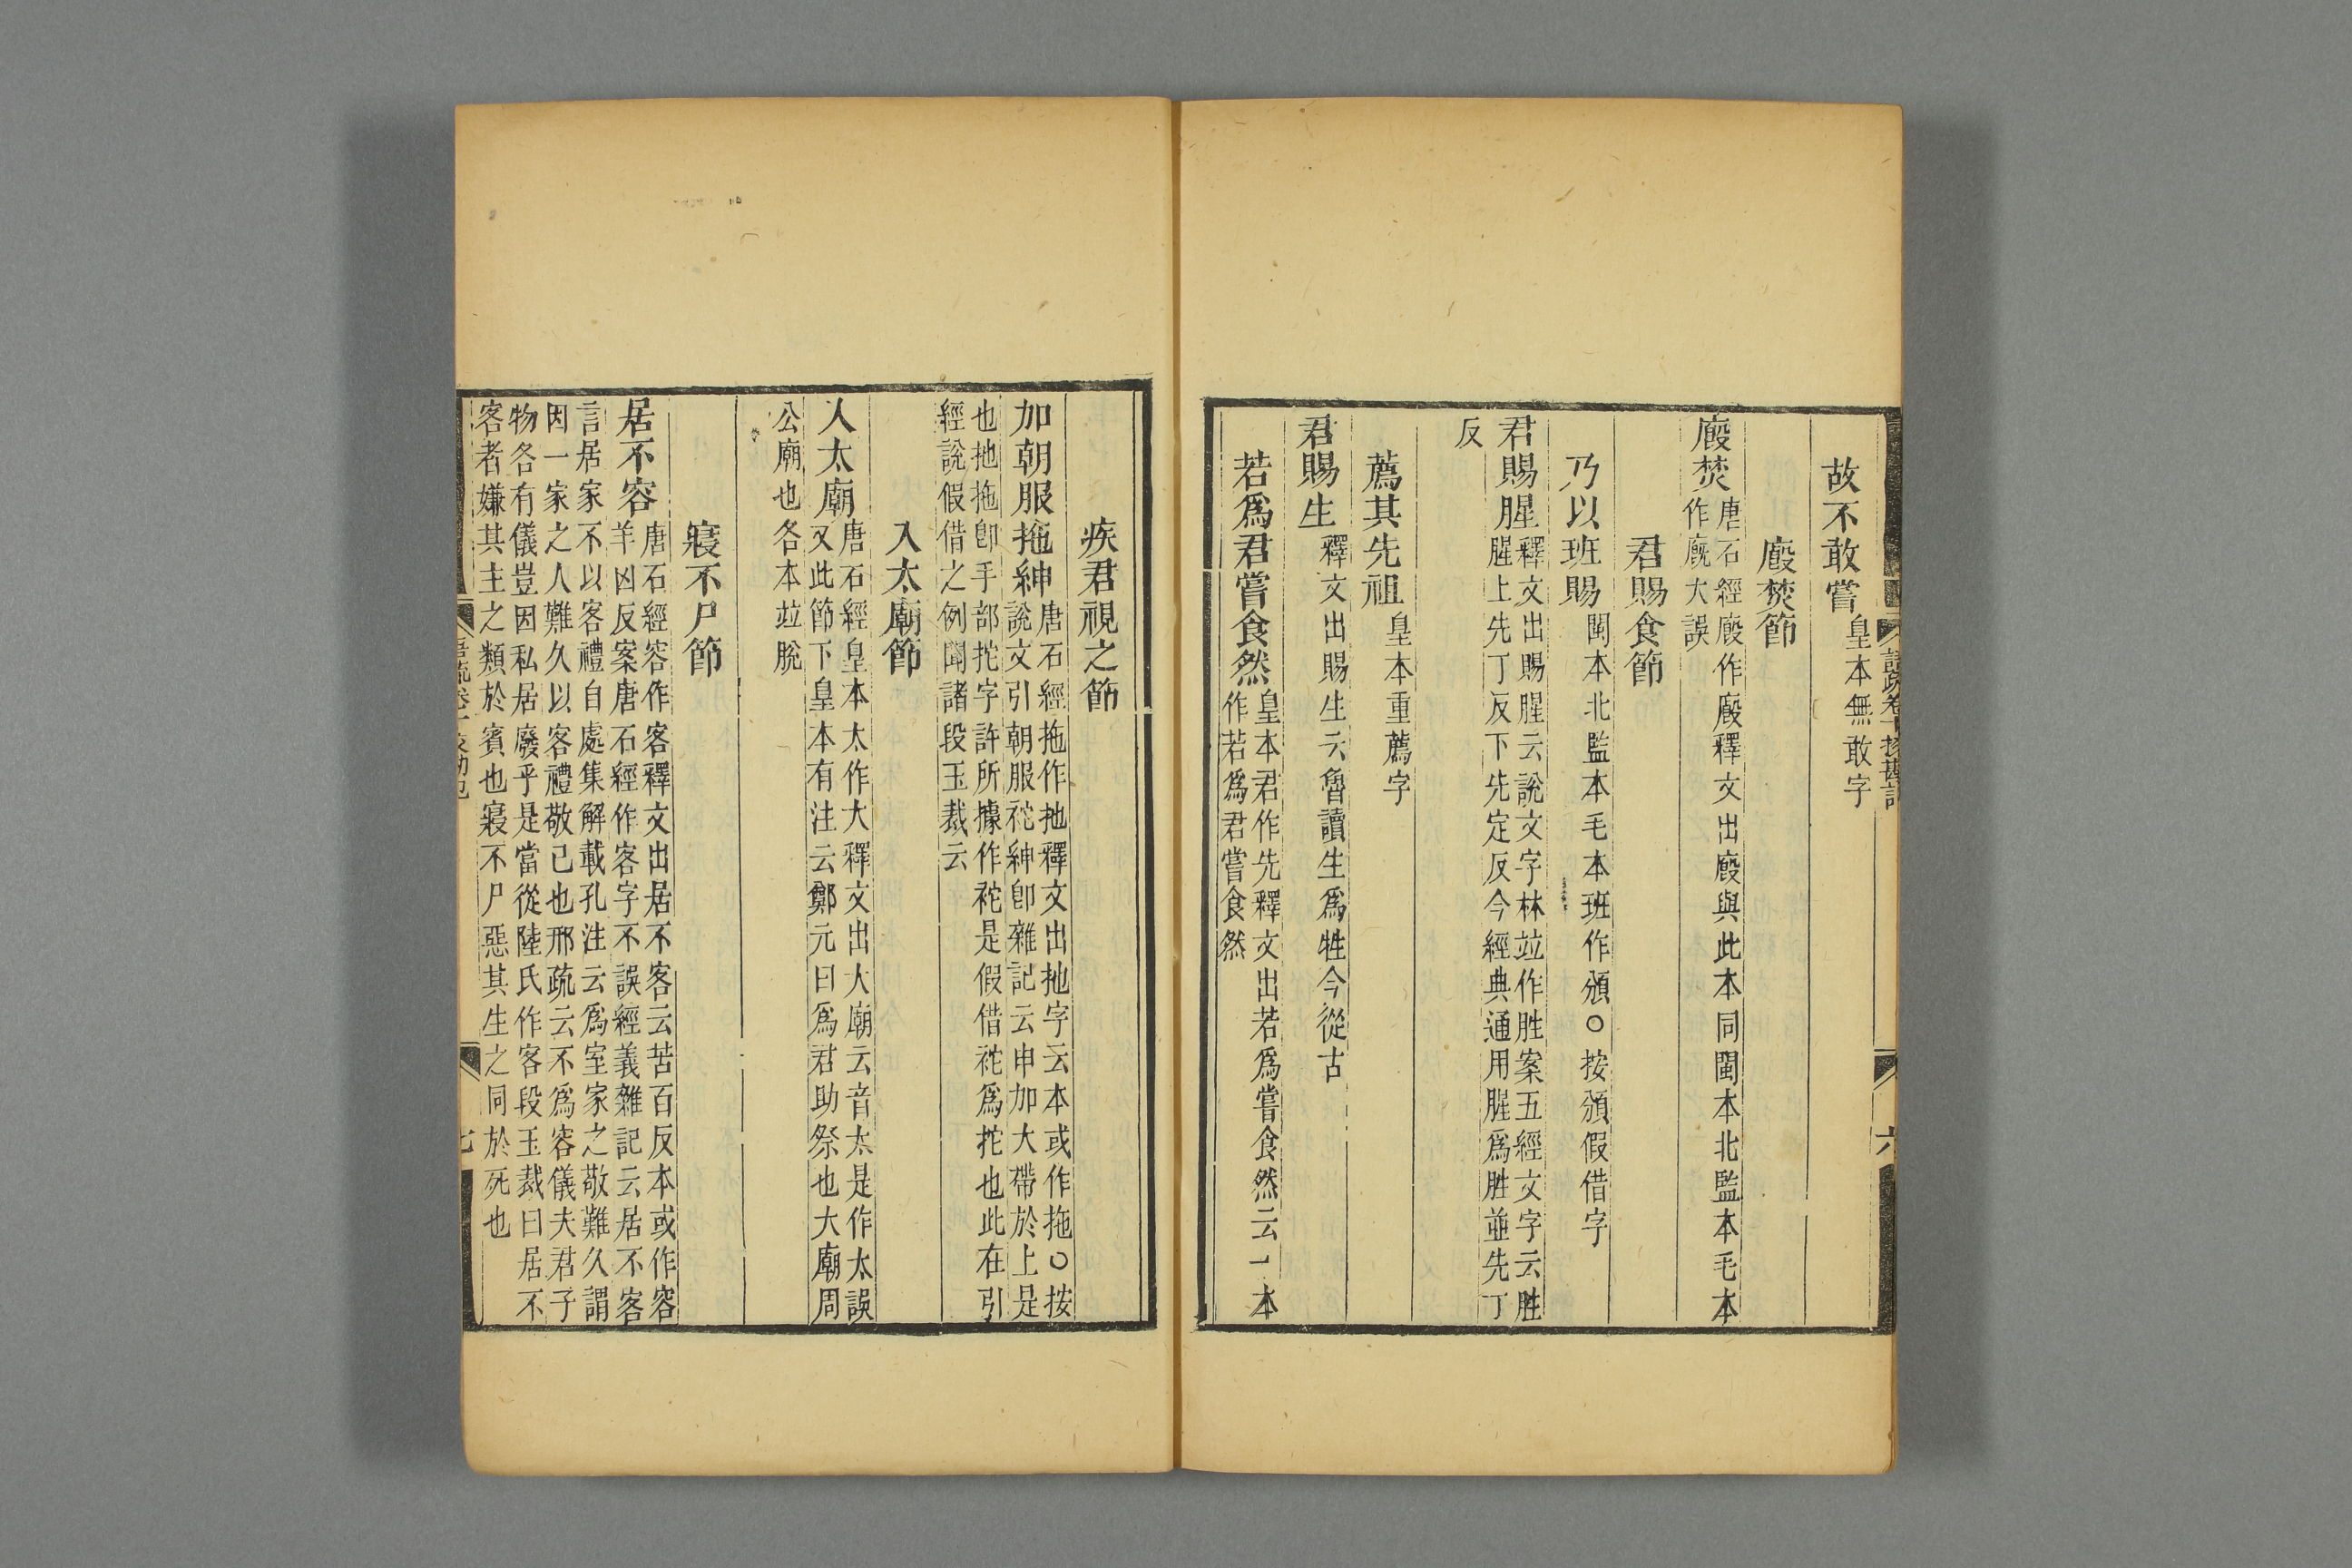 語疏卷十挍勘記
六
故不敢嘗皇本無敢字
廏焚節
廏焚唐石經廏作廄釋文出廏與此本同閩本北監本毛本
作廐大誤
君賜食節
乃以班賜閩本北監本毛本班作頒○按頒假借字
君賜腥釋文出賜腥云說文字林竝作胜案五經文字云胜
腥上先丁反下先定反今經典通用腥爲胜並先丁
反
薦其先祖皇本重薦字
君賜生釋文出賜生云魯讀生爲牲今從古
若爲君嘗食然皇本君作先釋文出若爲嘗食然云一本
作若爲君嘗食然
疾君視之節
加朝服拖紳唐石經拖作扡釋文出扡字云本或作拖○按
說文引朝服袉紳卽雜記云申加大帶於上是
也扡拖卽手部拕字許所據作袉是假借袉爲拕也此在引
經說假借之例聞諸段玉裁云
入太廟節
入太廟唐石經皇本太作大釋文出大廟云音太是作太誤
又此節下皇本有注云鄭元曰爲君助祭也大廟周
公廟也各本竝脫
寢不尸節
居不容唐石經容作客釋文出居不客云苦百反本或作容
羊凶反案唐石經作客字不誤經義雜記云居不客
言居家不以客禮自處集解載孔注云爲室家之敬難久謂
因一家之人難久以客禮敬己也邢疏云不爲容儀夫君子
物各有儀豈因私居廢乎是當從陸氏作客段玉裁曰居不
客者嫌其主之類於賓也寢不尸惡其生之同於死也
七